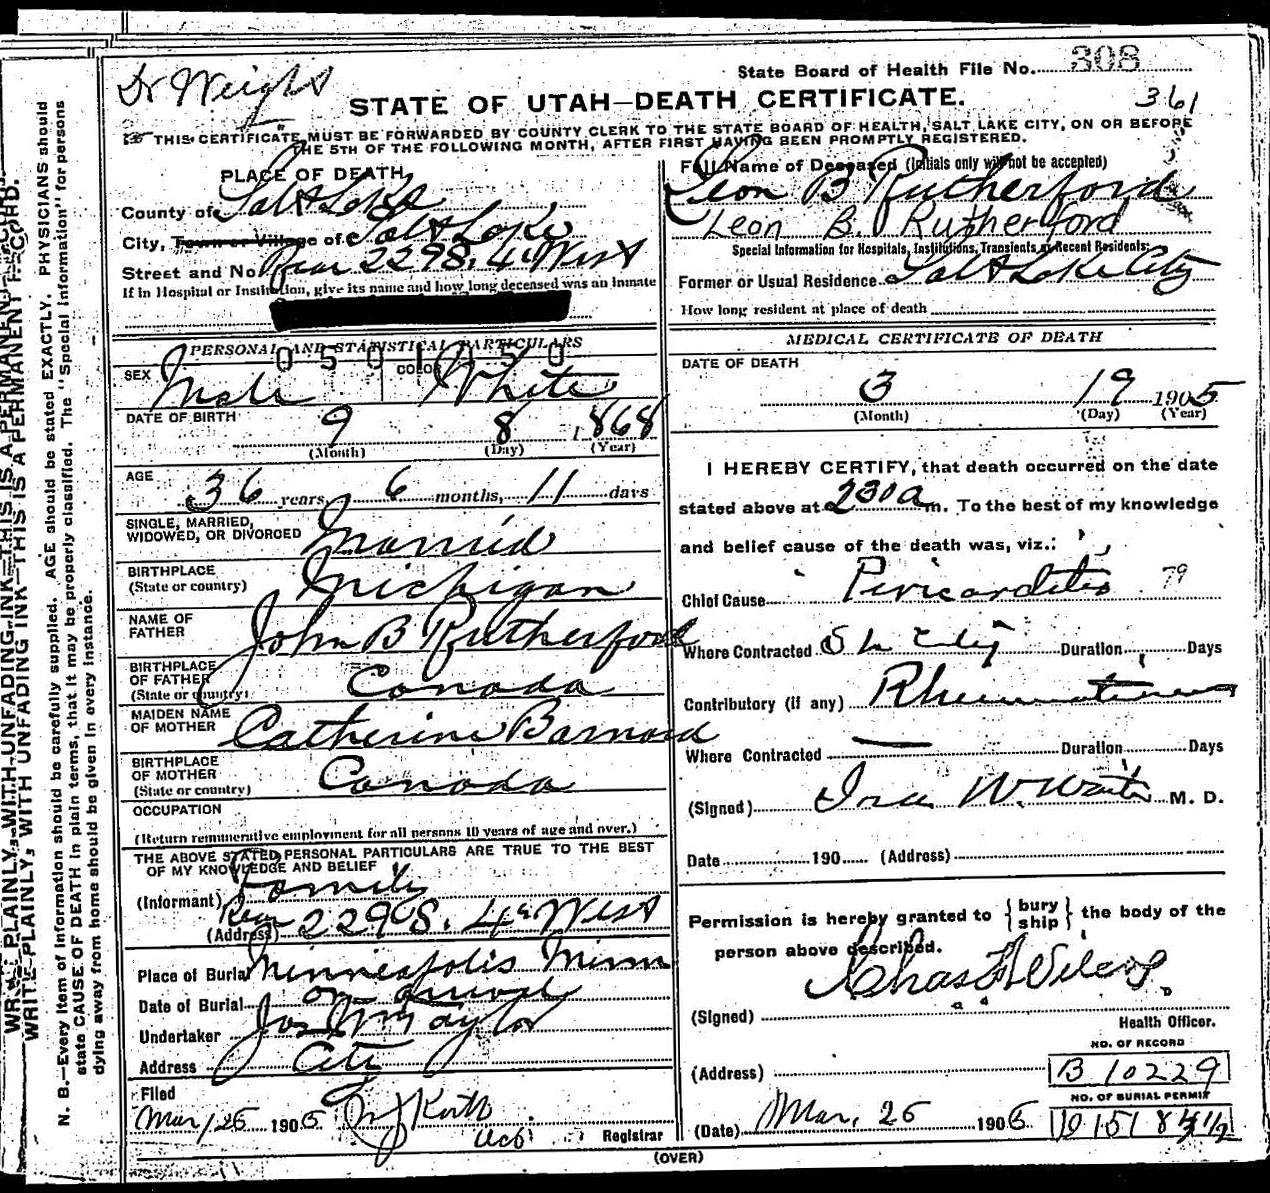 Dr Weight
State Board of Health File No. 308
STATE OF UTAH—DEATH CERTIFICATE.
361
THIS CERTIFICATE MUST BE FORWARDED BY COUNTY CLERK TO THE STATE BOARD OF HEALTH, SALT LAKE CITY, ON OR BEFORE
THE 5TH OF THE FOLLOWING MONTH, AFTER FIRST HAVING BEEN PROMPTLY REGISTERED.
PLACE OF DEATH
County of Salt Lake
City, Town or Village of Salt Lake
Street and No. Rear 229 S. 4th West
If in Hospital or Institution, give its name and how long deceased was an inmate
Full Name of Deceased (Initials only will not be accepted)
Leon B Rutherford
Leon B. Rutherford
Special Information for Hospitals, Institutions, Transients or Recent Residents:
Former or Usual Residence Salt Lake City
How long resident at place of death
PERSONAL AND STATISTICAL PARTICULARS
0501150
SEX Male COLOR White
DATE OF BIRTH 9 8 1868
(Month) (Day) (Year)
AGE 36 years 6 months, 11 days
SINGLE, MARRIED,
WIDOWED, OR DIVORCED Married
BIRTHPLACE
(State or country) Michigan
NAME OF
FATHER John B Rutherford
BIRTHPLACE
OF FATHER
(State or country) Canada
MAIDEN NAME
OF MOTHER Catherine Barnard
BIRTHPLACE
OF MOTHER
(State or country) Canada
OCCUPATION
(Return remunerative employment for all persons 10 years of age and over.)
THE ABOVE STATED PERSONAL PARTICULARS ARE TRUE TO THE BEST
OF MY KNOWLEDGE AND BELIEF
(Informant) Family
(Address) Rear 229 S. 4th West
Place of Burial Minneapolis Minn
Date of Burial on arrival
Undertaker Jos Wm Taylor
Address City
Filed
Mar 25 1905
Registrar
MEDICAL CERTIFICATE OF DEATH
DATE OF DEATH
3 19 1905
(Month) (Day) (Year)
I HEREBY CERTIFY, that death occurred on the date
stated above at 230 a m. To the best of my knowledge
and belief cause of the death was, viz.:
Chief Cause Pericarditis 79
Where Contracted S L City Duration Days
Contributory (if any) Rheumatism
Where Contracted — Duration Days
(Signed) M. D.
Date 190 (Address)
Permission is hereby granted to {bury ship} the body of the
person above described.
(Signed) Chas F Wilcox.
Health Officer.
NO. OF RECORD
(Address) B 10229
NO. OF BURIAL PERMIT
(Date) Mar, 25 1905
(OVER)
WRITE PLAINLY, WITH UNFADING INK—THIS IS A PERMANENT RECORD.
WRITE PLAINLY, WITH UNFADING INK—THIS IS A PERMANENT RECORD.
N. B.—Every item of information should be carefully supplied. AGE should be stated EXACTLY. PHYSICIANS should
state CAUSE OF DEATH in plain terms, that it may be properly classified. The "Special information" for persons
dying away from home should be given in every instance.